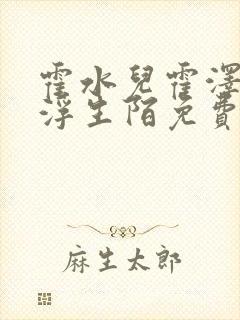 霍水兒霍澤
浮生陌免費
麻生太郎